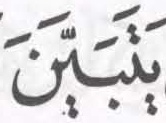 يَتَبَيَّنَ